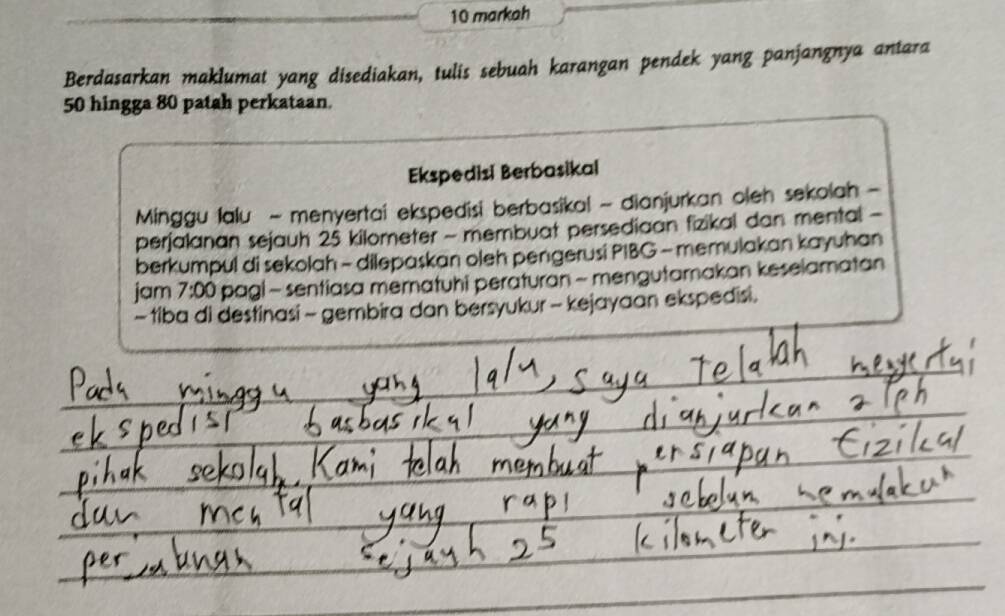 10 markah
Berdasarkan maklumat yang disediakan, tulis sebuah karangan pendek yang panjangnya antara
50 hingga 80 patah perkataan.
Ekspedisi Berbasikal
Minggu lalu - menyertai ekspedisi berbasikal - dianjurkan oleh sekolah -
perjalanan sejauh 25 kilometer - membuat persediaan fizikal dan mental -
berkumpul di sekolah - dilepaskan oleh pengerusi PIBG - memulakan kayuhan
jam 7:00 pagi - sentiasa mematuhi peraturan - mengutamakan keselamatan
- tiba di destinasi - gembira dan bersyukur - kejayaan ekspedisi.
Pada minggu yang lalu, saya telalah menyertai
ekspedisi basbasikal yang dianjurkan oleh
pihak sekolah. Kami telah membuat persiapan fizikal
dan mental yang rapi sebelum memulakan
perjalanan sejauh 25 kilometer ini.